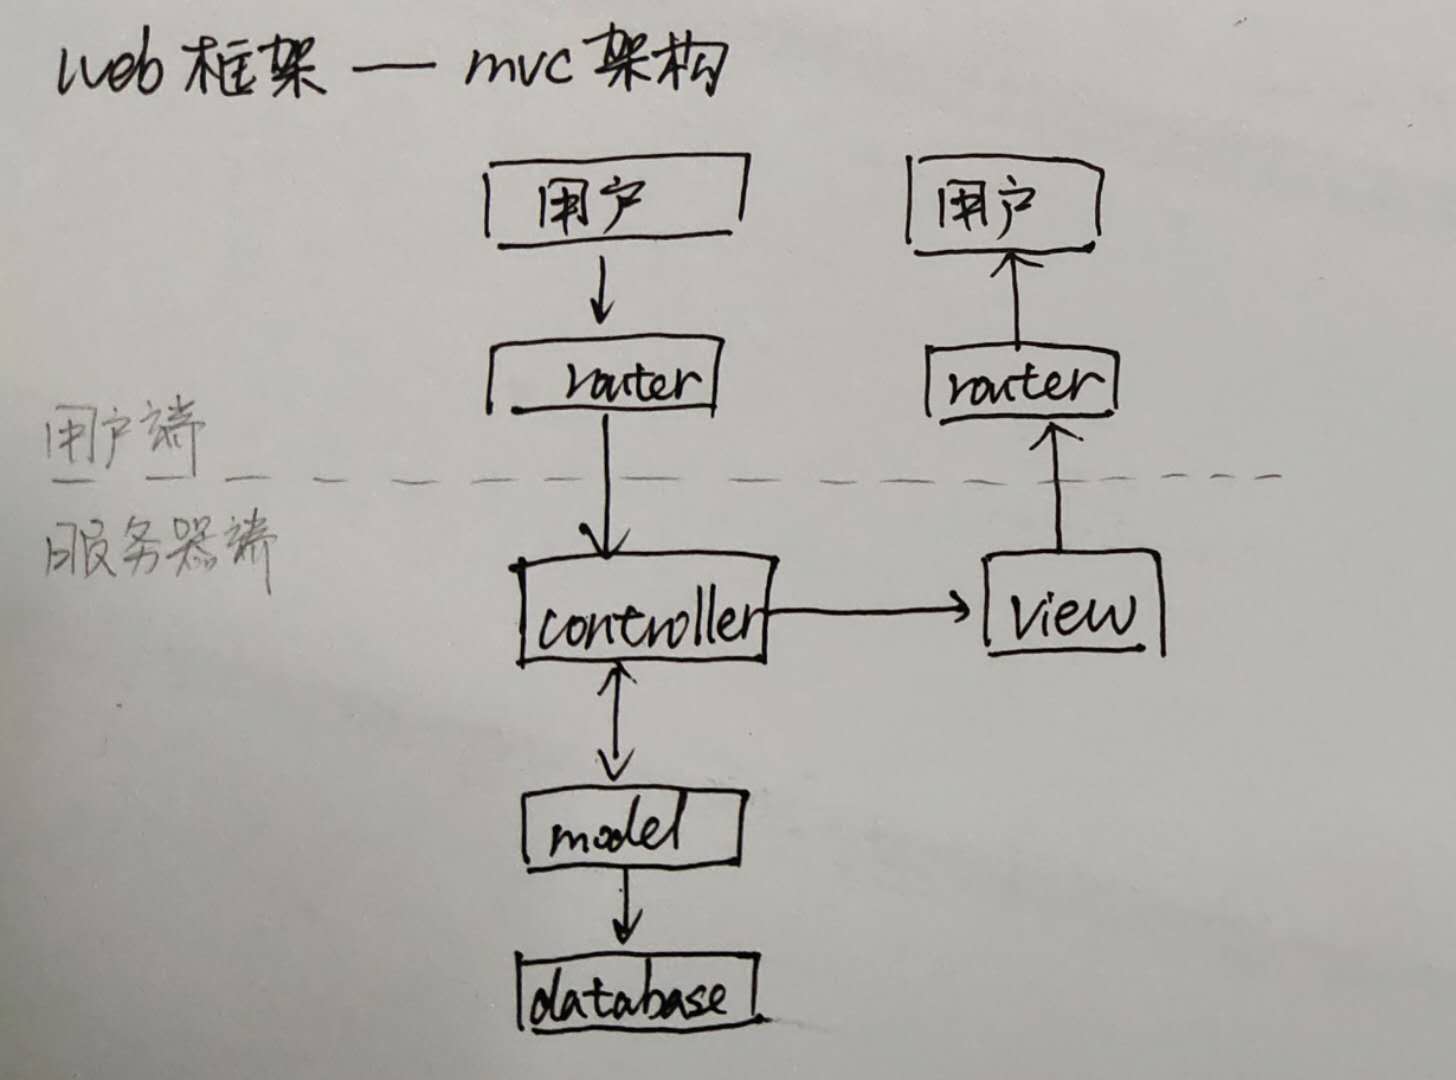 web框架 — mvc架构
用户 用户
router router
用户端
服务器端
controller view
model
database